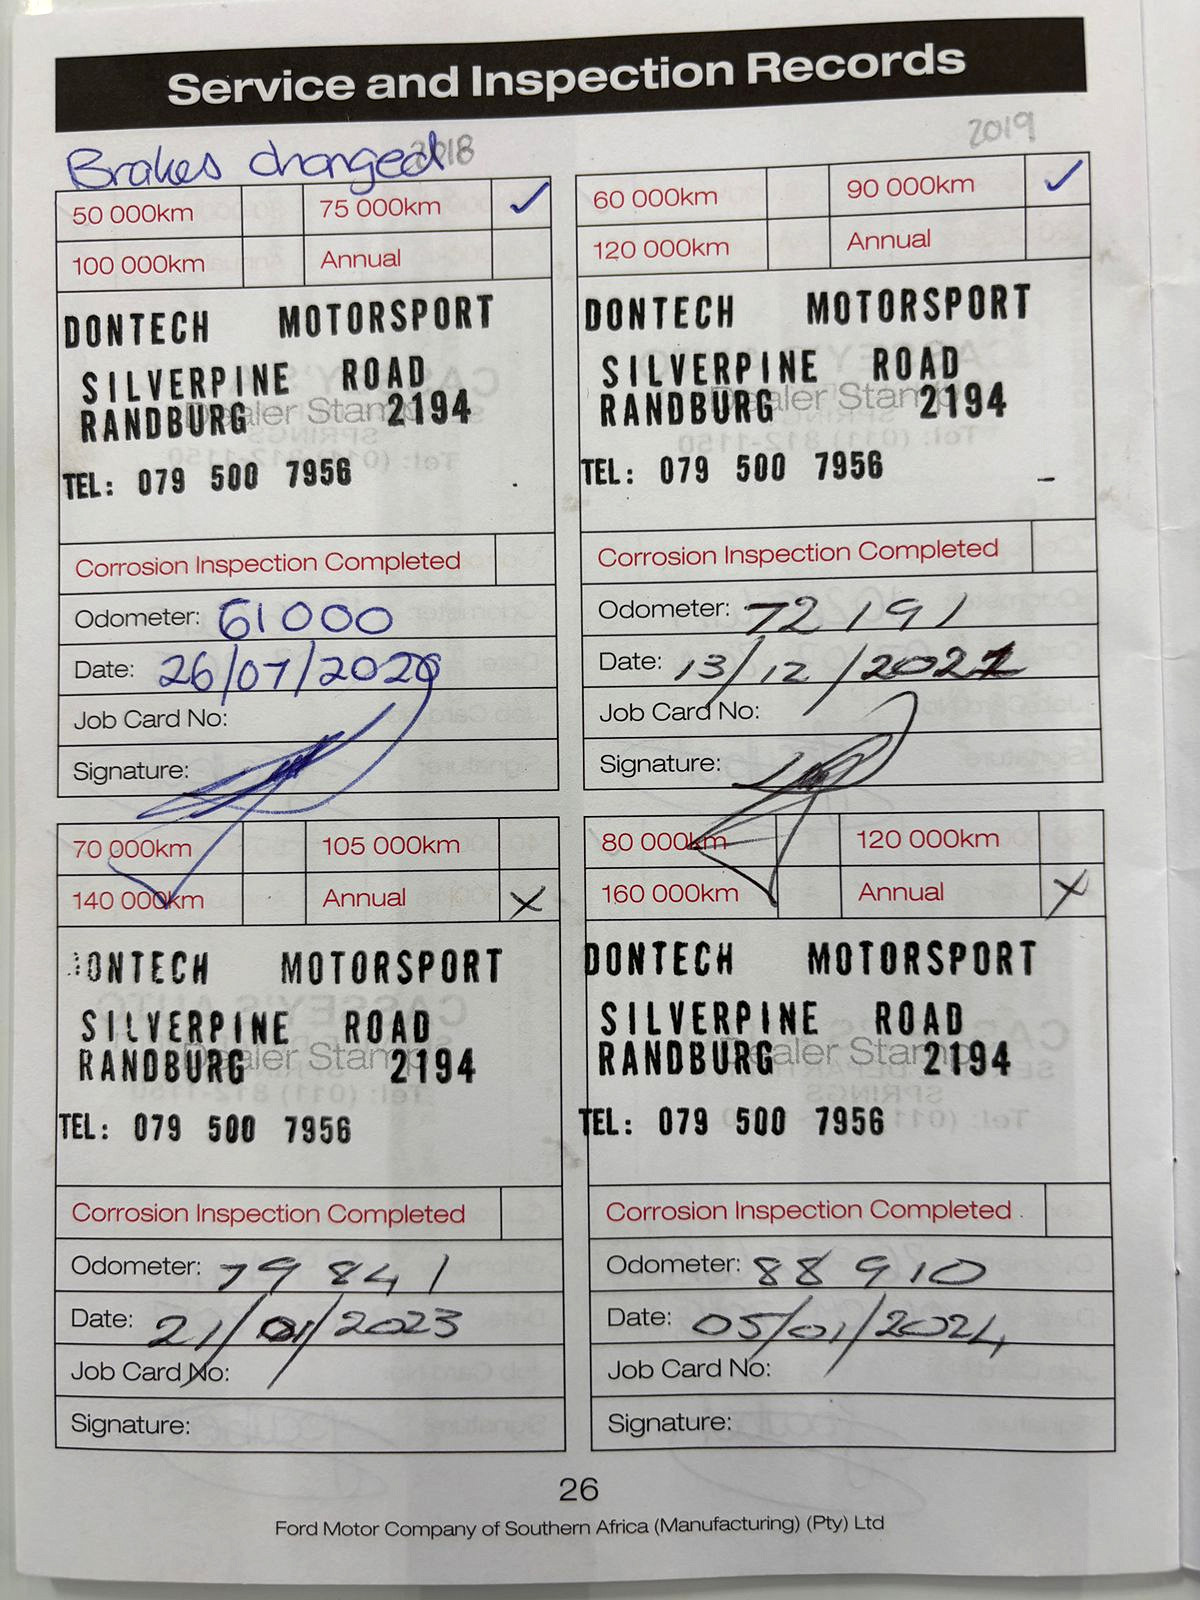 Service and Inspection Records
Brakes changed 2018
50 000km 75 000km ✓
100 000km Annual
DONTECH MOTORSPORT
SILVERPINE ROAD
Dealer Stamp
RANDBURG 2194
TEL: 079 500 7956
Corrosion Inspection Completed
Odometer: 61000
Date: 26/07/2020
Job Card No:
Signature:
2019
60 000km 90 000km ✓
120 000km Annual
DONTECH MOTORSPORT
SILVERPINE ROAD
Dealer Stamp
RANDBURG 2194
TEL: 079 500 7956
Corrosion Inspection Completed
Odometer: 72191
Date: 13/12/2021
Job Card No:
Signature:
70 000km 105 000km
140 000km Annual X
DONTECH MOTORSPORT
SILVERPINE ROAD
Dealer Stamp
RANDBURG 2194
TEL: 079 500 7956
Corrosion Inspection Completed
Odometer: 79 841
Date: 21/01/2023
Job Card No:
Signature:
80 000km 120 000km
160 000km Annual X
DONTECH MOTORSPORT
SILVERPINE ROAD
Dealer Stamp
RANDBURG 2194
TEL: 079 500 7956
Corrosion Inspection Completed
Odometer: 88 910
Date: 05/01/2024
Job Card No:
Signature:
26
Ford Motor Company of Southern Africa (Manufacturing) (Pty) Ltd